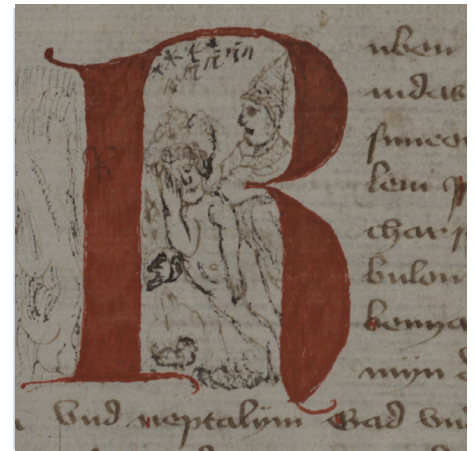 Ruben
iudas
simeo
leui
ysachar
bulon
benya
mijn
vnd neptalijm Gad vnd